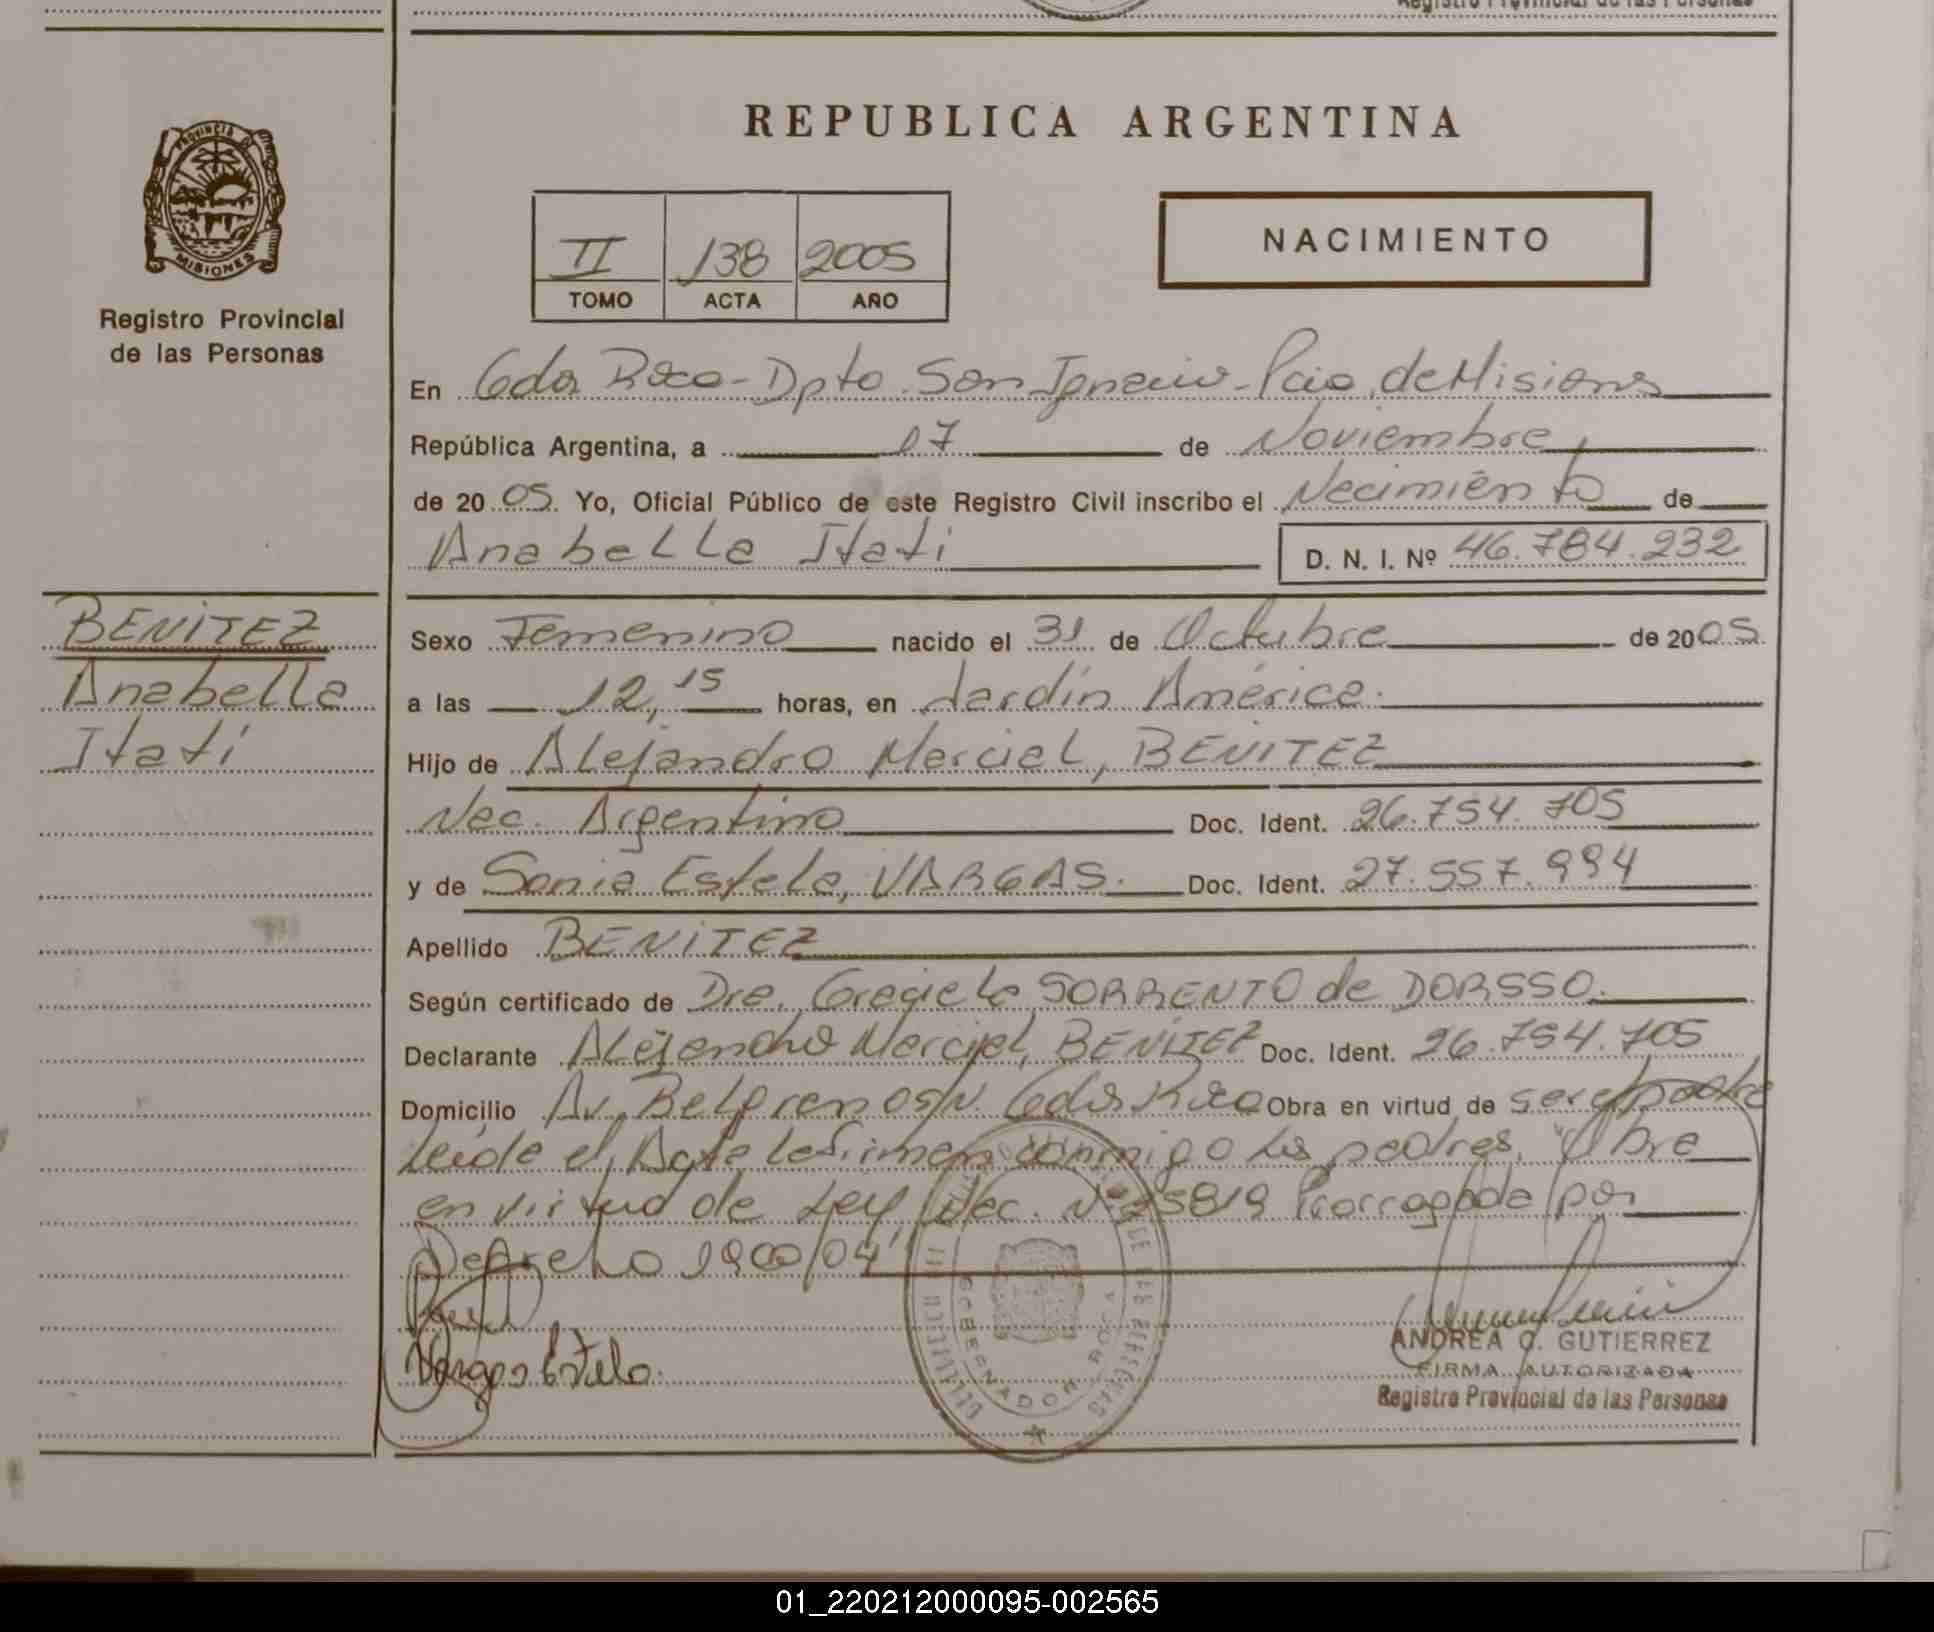 Registro Provincial de las Personas
REPUBLICA ARGENTINA
PROVINCIA DE
MISIONES
Registro Provincial
de las Personas
II 138 2005
TOMO ACTA AÑO
NACIMIENTO
En Gdor Roca - Dpto. San Ignacio - Pcia. de Misiones
República Argentina, a 17 de Noviembre
de 2005. Yo, Oficial Público de este Registro Civil inscribo el Nacimiento de
Anabella Itati D. N. I. Nº 46.784.232
BENITEZ
Anabella
Itatí
Sexo Femenino nacido el 31 de Octubre de 2005
a las 12,15 horas, en Jardín América.
Hijo de Alejandro Marciel, BENITEZ
Nac. Argentino Doc. Ident. 26.754.705
y de Sonia Estela, VARGAS. Doc. Ident. 27.557.994
Apellido BENITEZ
Según certificado de Dra. Graciela SORRENTO de DORSSO.
Declarante Alejandro Marciel, BENITEZ Doc. Ident. 26.754.705
Domicilio Av. Belgrano s/N. Gdor Roca Obra en virtud de ser el padre
Leída el Acta la firman conmigo los padres. Obra
en virtud de Ley Nac. Nº 25819 Prorrogada por
Decreto 1900/04
Vargas Estela.
GOBERNADOR ROCA
ANDREA C. GUTIERREZ
FIRMA AUTORIZADA
Registro Provincial de las Personas
01_220212000095-002565